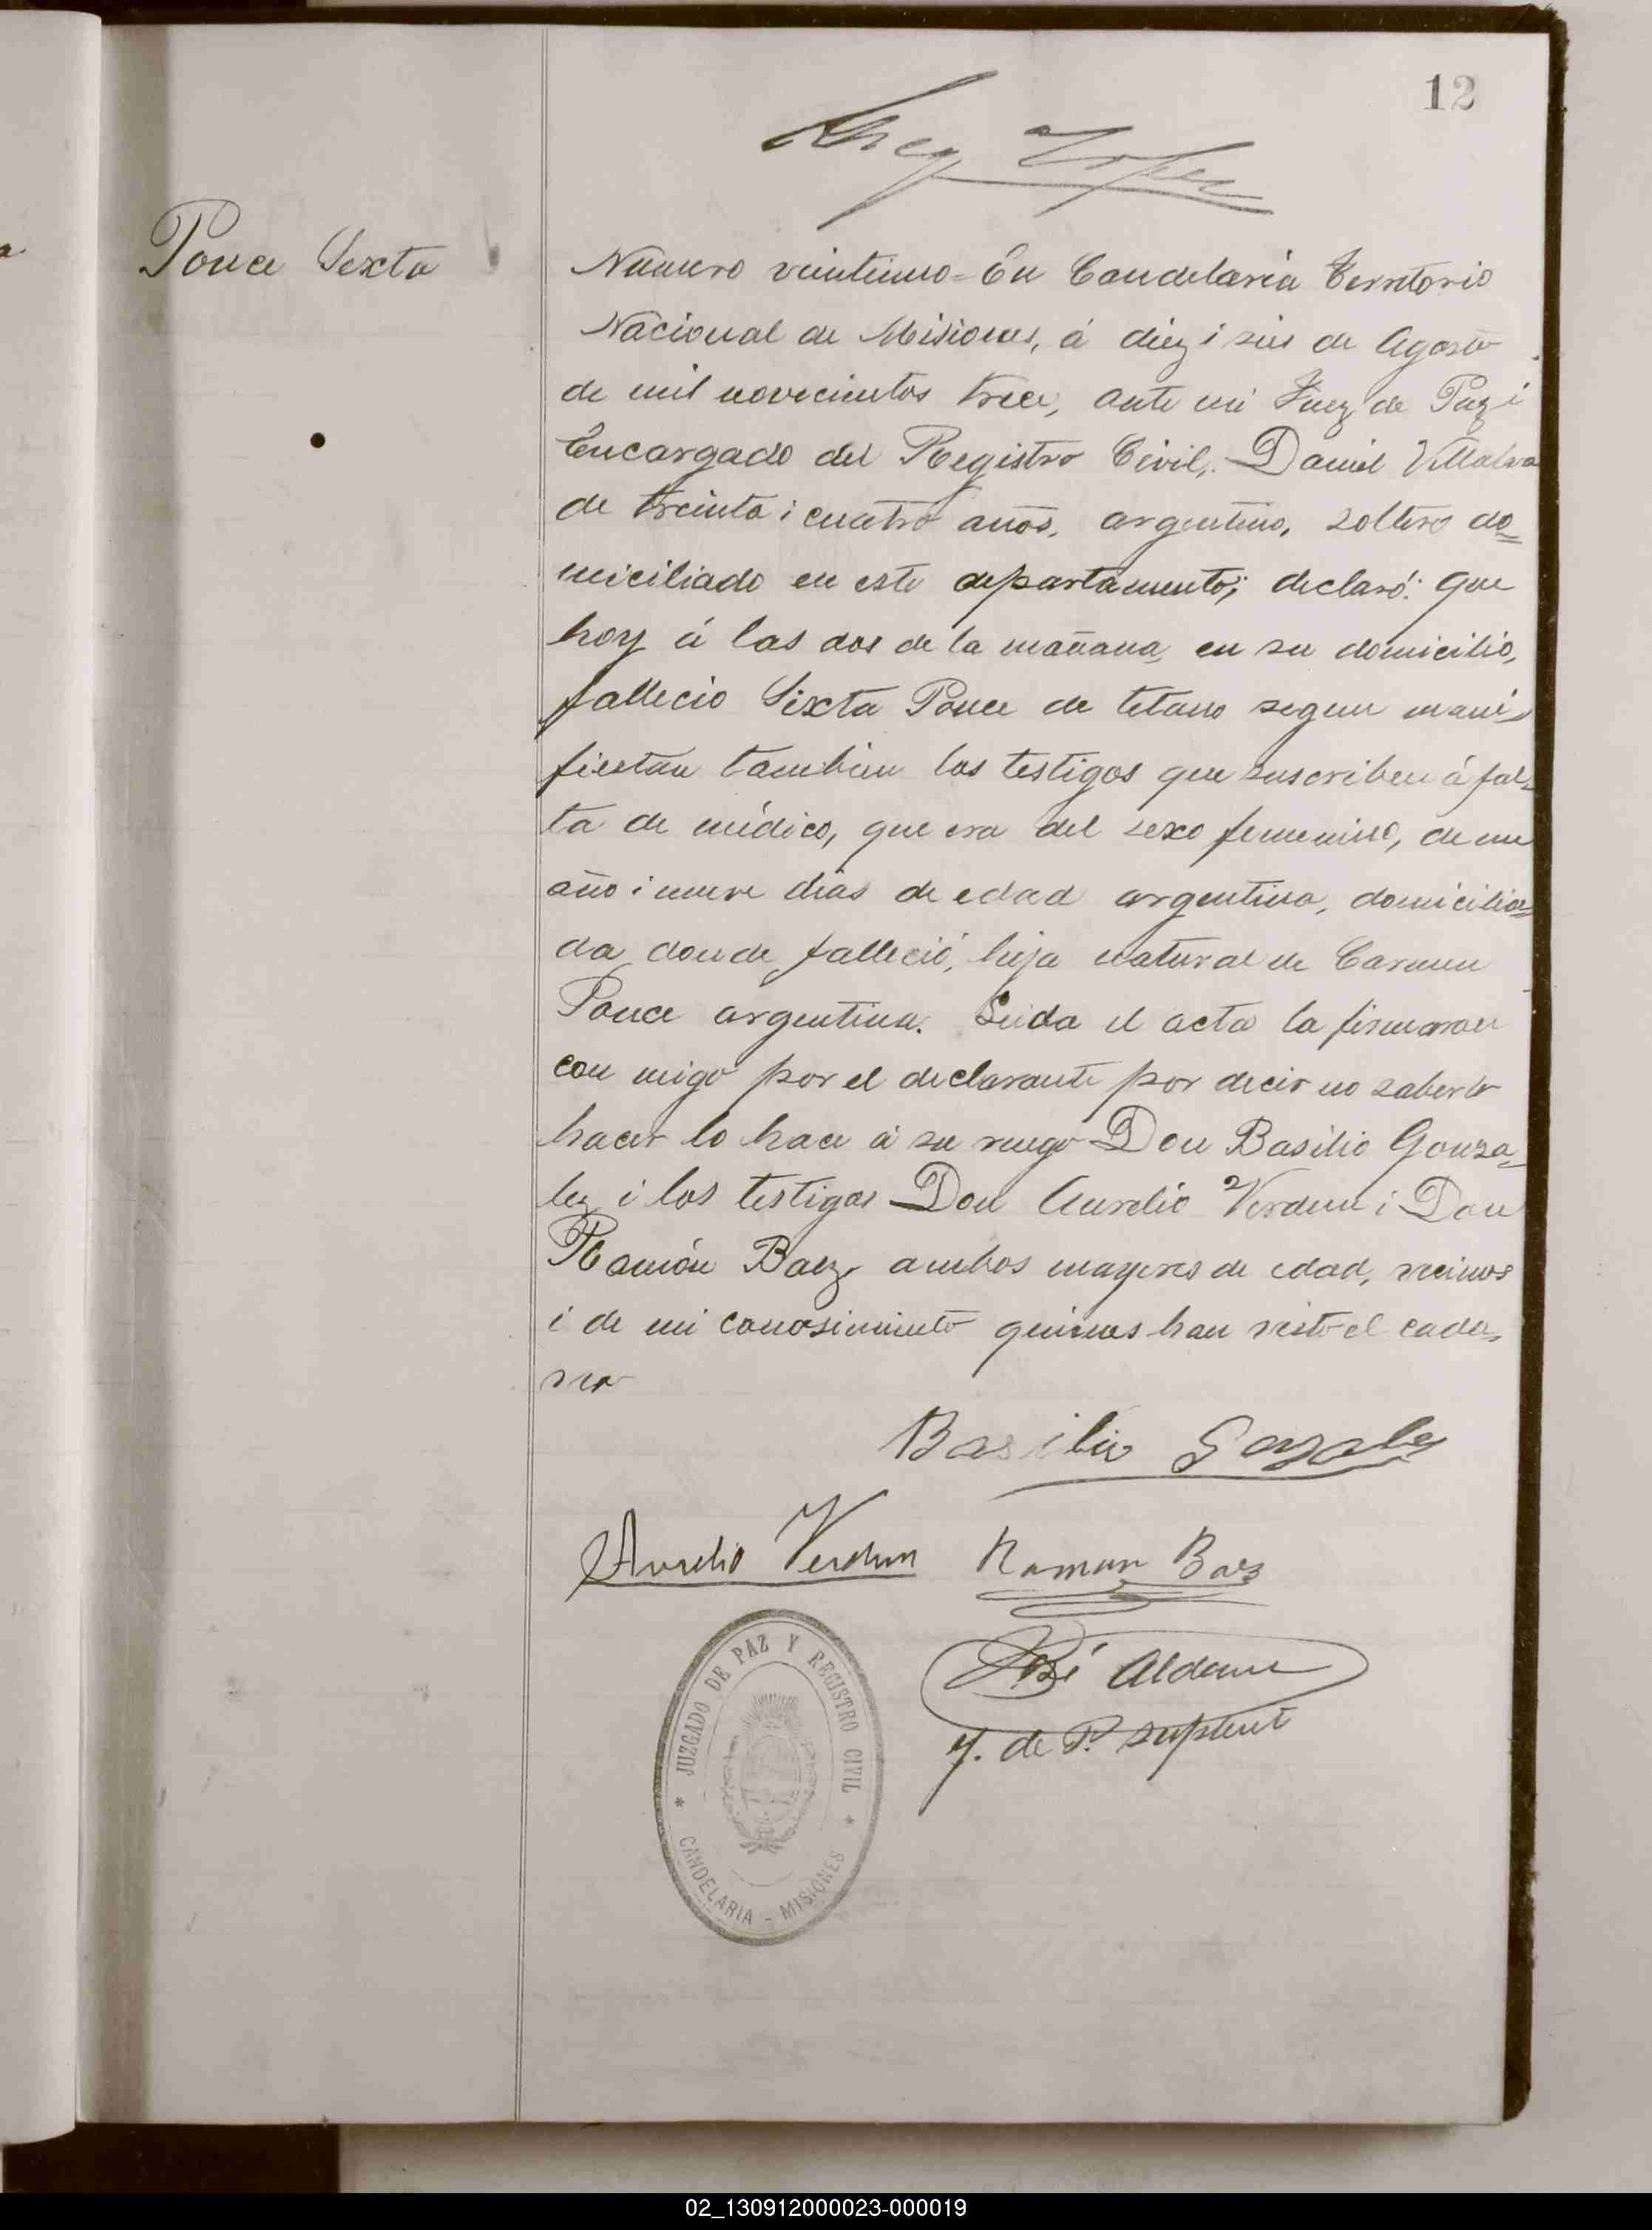 12
Ponce Sexta
Numero veintiuno = En Candelaria Territorio
Nacional de Misiones, á diez i seis de Agosto
de mil novecientos trece, ante mi Juez de Paz i
Encargado del Registro Civil, Daniel Villalva
de treinta i cuatro años, argentino, soltero do=
miciliado en este departamento; declaró: que
hoy á las dos de la mañana, en su domicilio,
fallecio Sixta Ponce de tetano segun mani-
fiestan tambien los testigos que suscriben á fal-
ta de médico, que era del sexo femenino, de un
año i nueve dias de edad argentina, domicilia=
da donde falleció, hija natural de Carmen
Ponce argentina. Leida el acta la firmaron
con migo por el declarante por decir no saberlo
hacer lo hace á su ruego Don Basilio Gonza-
lez i los testigos Don Aurelio Verdun i Don
Ramón Baez, ambos mayores de edad, vecinos
i de mi conosimiento quienes han visto el cada-
ver
Basilio Gonzalez
Aurelio Verdun Ramon Baez
José Aldama
J. de P. suplente
JUZGADO DE PAZ Y REGISTRO CIVIL
* CANDELARIA - MISIONES *
02_130912000023-000019